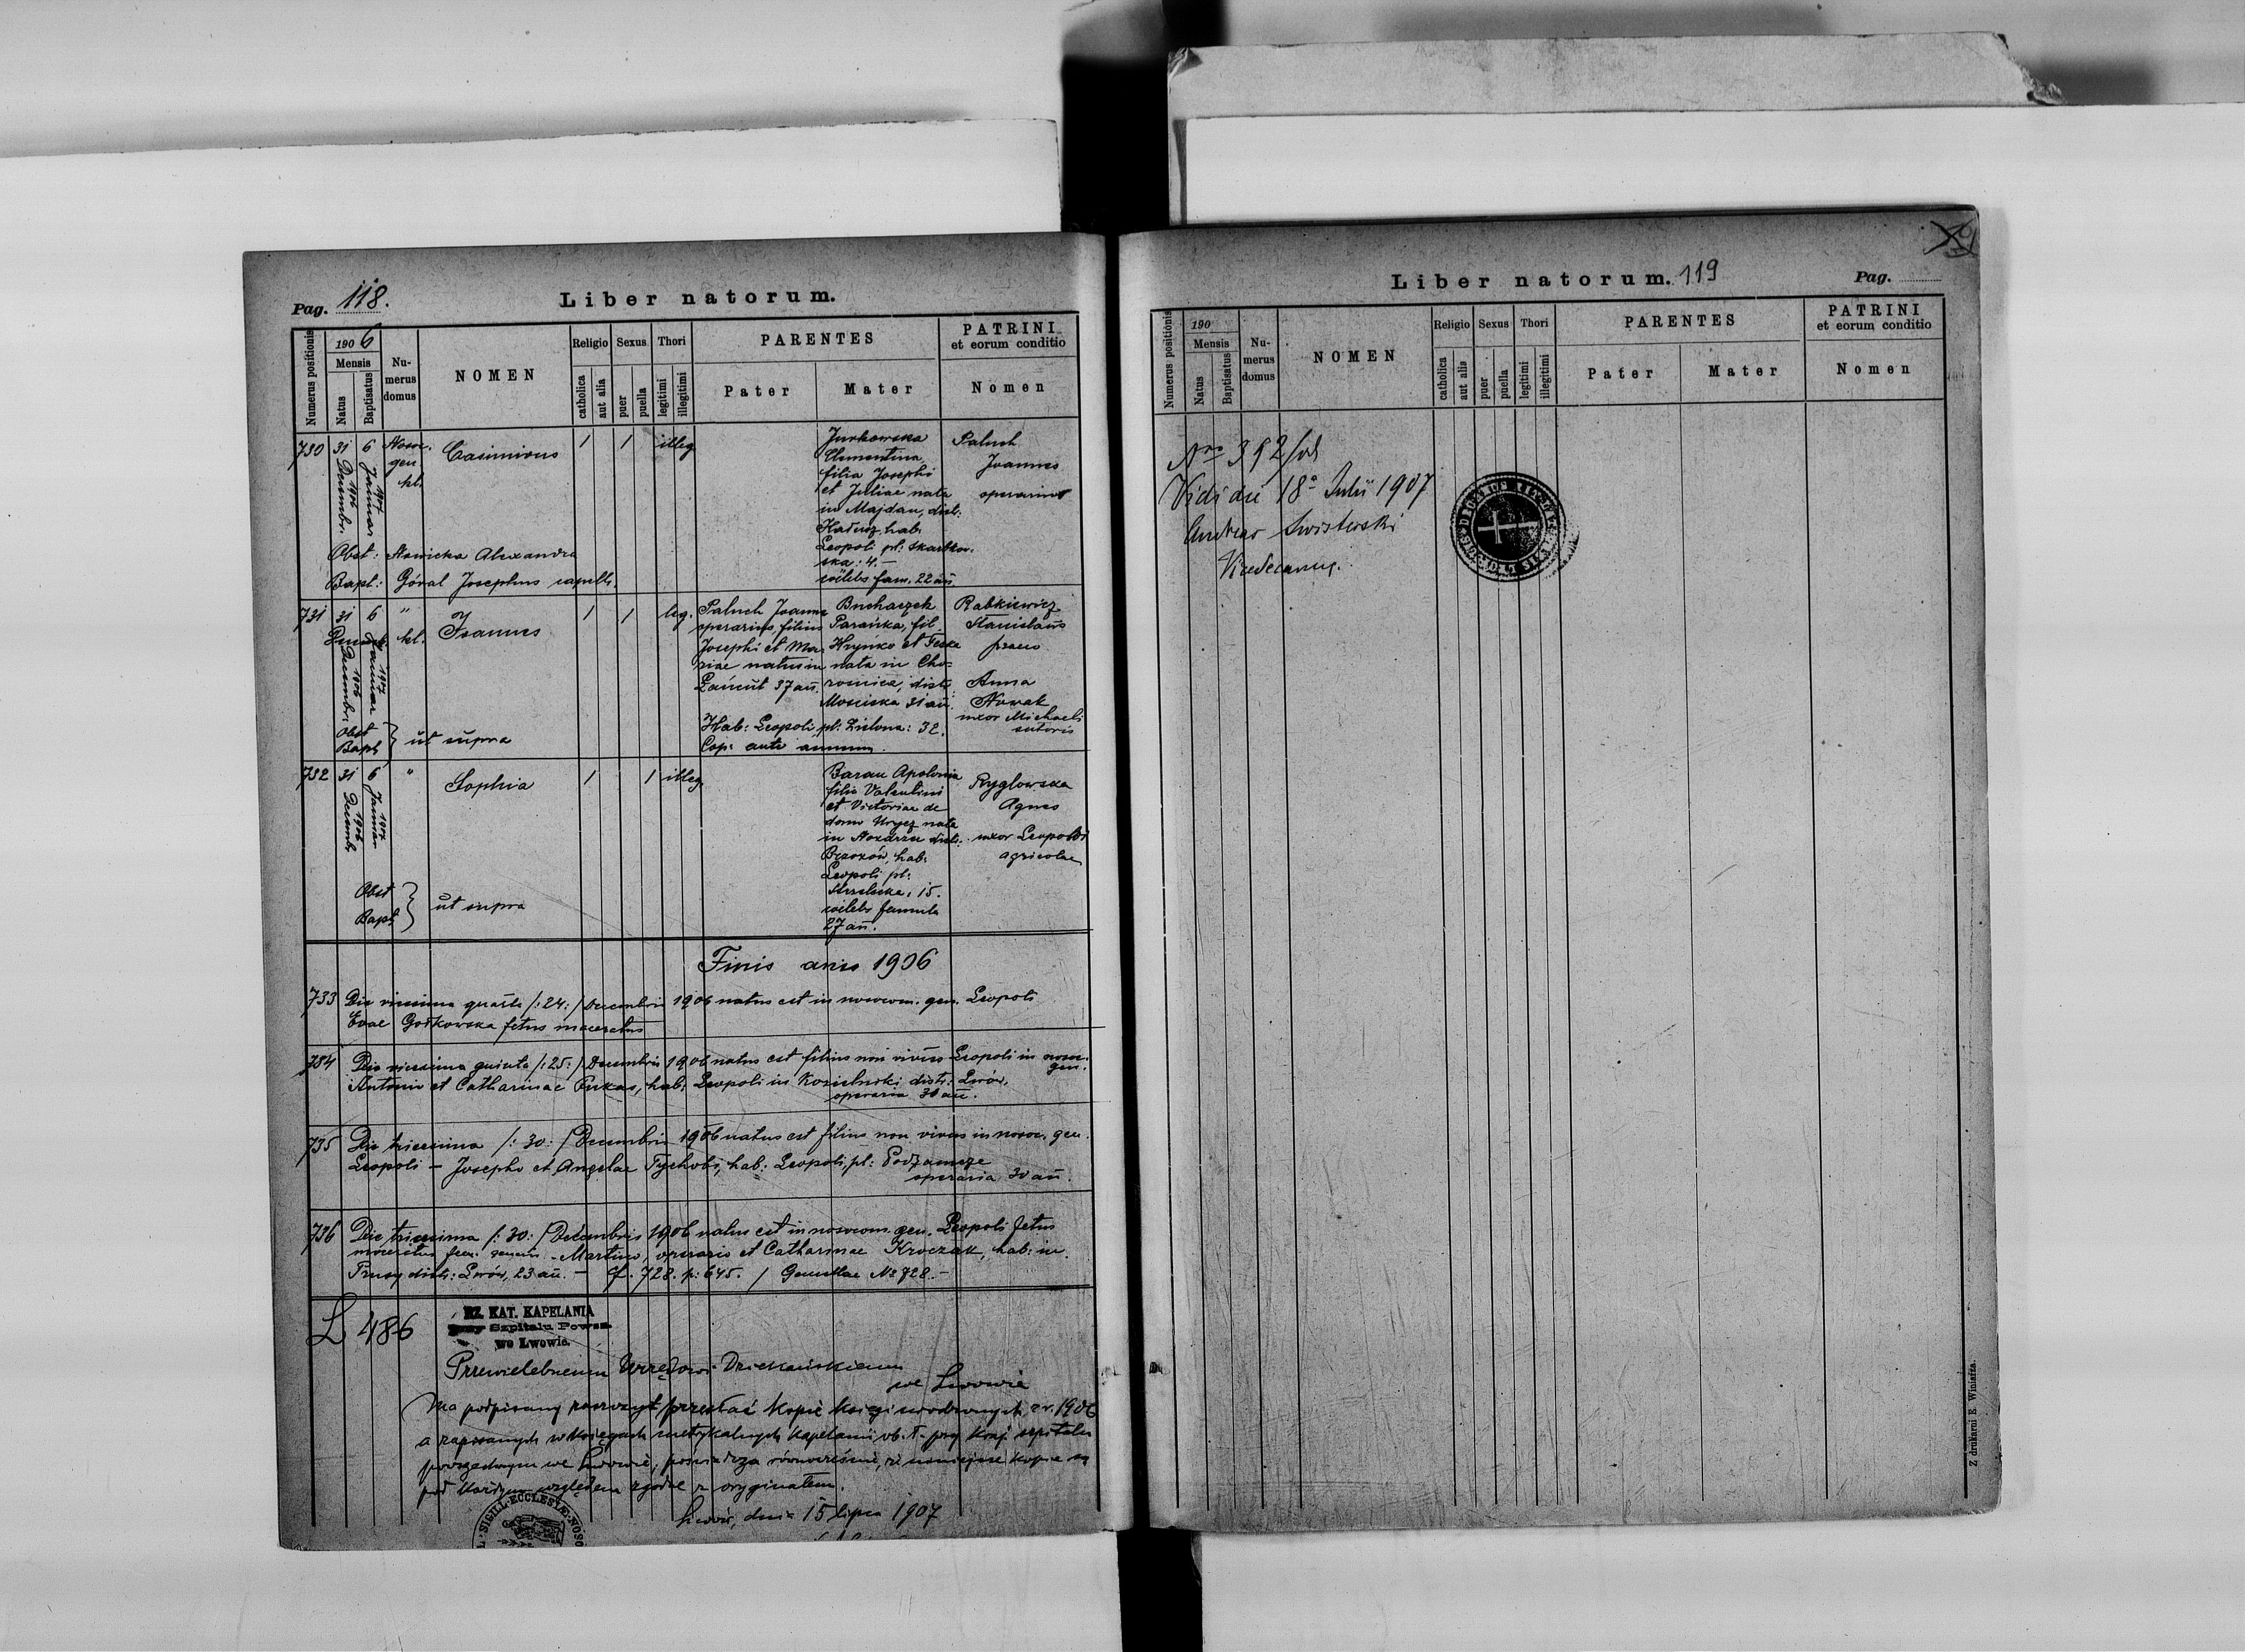 Pag. 118.
Liber natorum.
Numerus positionis
1906
Mensis
Natus
Baptisatus
Nu-
merus
domus
NOMEN
Religio
catholica
aut alia
Sexus
puer
puella
Thori
legitimi
illegitimi
PARENTES
Pater
Mater
PATRINI
et eorum conditio
Nomen
730
31
Decembr. 1906
6
Januar 1907
Nosoc.
gen.
kl.
Casimirus
1
1
illeg.
Jurkowska
Clementina,
filia Josephi
et Juliae nata
in Majdan, distr:
hab:
Leopoli pl: Skarbkow-
ska: 4. –
coelebs fam. 22 an̄.
Paluch
Joannes
operarius
Obst: Nowicka Alexandra
Bapt: Góral Josephus capell.
731
31
Decembr. 1906
6
Januar 1907
"
kl.
Joannes
1
1
leg.
Paluch Joannes
operarius filius
Josephi et Ma-
riae natus in
Łańcut 37 an̄.
Buchaczek
Parańka, fil.
Hryńko et Teske
nata in Cho-
rosnica, distr:
Mosciska 31 an̄.
Hab: Leopoli, pl: Zielona: 32.
Cop: ante annum.
Rabkiewicz
Stanislaus
praeco
Anna
Nowak
uxor Michaeli
sutoris
Obst
Bapt } ut supra
732
31
Decembr 1906
6
Januar 1907
"
Sophia
1
1
illeg.
Baran Apolonia
filia Valentini
et Victoriae de
domo nata
in distr:
Brzozów, hab:
Leopoli pl:
Strzelecka: 15.
coelebs famula
27 an̄.
Ryglowska
Agnes
uxor Leopoldi
agricolae
Obst
Bapt } ut supra
Finis anis 1906
733 Die vicesima quarta /:24:/ Decembris 1906 natus est in nosocom. gen. Leopoli
Evae Gorkowska fetus maceratus
734 Die vicesima quinta /:25:/ Decembris 1906 natus est filius non vivus Leopoli in nosoc. gen.
Antonio et Catharinae Pukas, hab: Leopoli in Kozielniki distr: Lwów,
operaria 30 an̄.
735 Die tricesima /:30:/ Decembris 1906 natus est filius non vivus in nosoc. gen.
Leopoli – Josepho et Angelae hab: Leopoli, pl: Podzamcze
operaria 30 an̄.
736 Die tricesima /:30:/ Decembris 1906 natus est in nosocom. gen. Leopoli fetus
maceratus fem. – Martino, operario et Catharinae Kroczak, hab: in
Prusy distr: Lwów, 23 an̄. – cf. 728. p: 645. / Gemellae No 728. –
L 486
RZ. KAT. KAPELANIA
przy Szpitalu Powsz.
we Lwowie.
Przewielebnemu Urzędowi Dziekańskiemu
we Lwowie
Ma podpisany zaszczyt przesłać kopie księgi urodzonych z r. 1906
a zapisanych w księgach metrykalnych kapelanii ob. ł. przy kraj. szpitalu
powszechnym we Lwowie, poświadcza równocześnie, że niniejsze kopie są
pod każdym względem zgodne z oryginałem.
Lwów, dnia 15 lipca 1907
SIGILL. ECCLESIÆ NOSO
Liber natorum. 119
Pag.
Numerus positionis
190
Mensis
Natus
Baptisatus
Nu-
merus
domus
NOMEN
Religio
catholica
aut alia
Sexus
puer
puella
Thori
legitimi
illegitimi
PARENTES
Pater
Mater
PATRINI
et eorum conditio
Nomen
Vidi die 18a Julii 1907
Vicedecanus.
Z drukarni E. Winiarza.